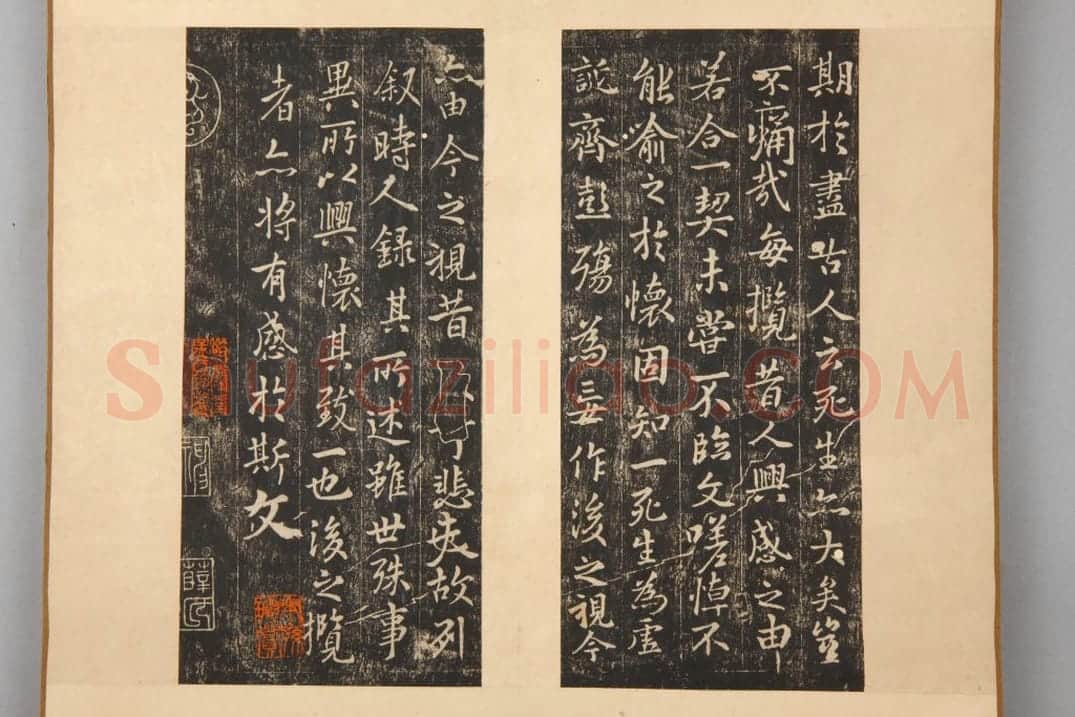 期於盡古人云死生亦大矣豈
不痛哉每攬昔人興感之由
若合一契未嘗不臨文嗟悼不
能喻之於懷固知一死生為虛
誕齊彭殤為妄作後之視今
亦由今之視昔悲夫故列
叙時人錄其所述雖世殊事
異所以興懷其致一也後之攬
者亦將有感於斯文
薛氏
Shufaziliao.COM